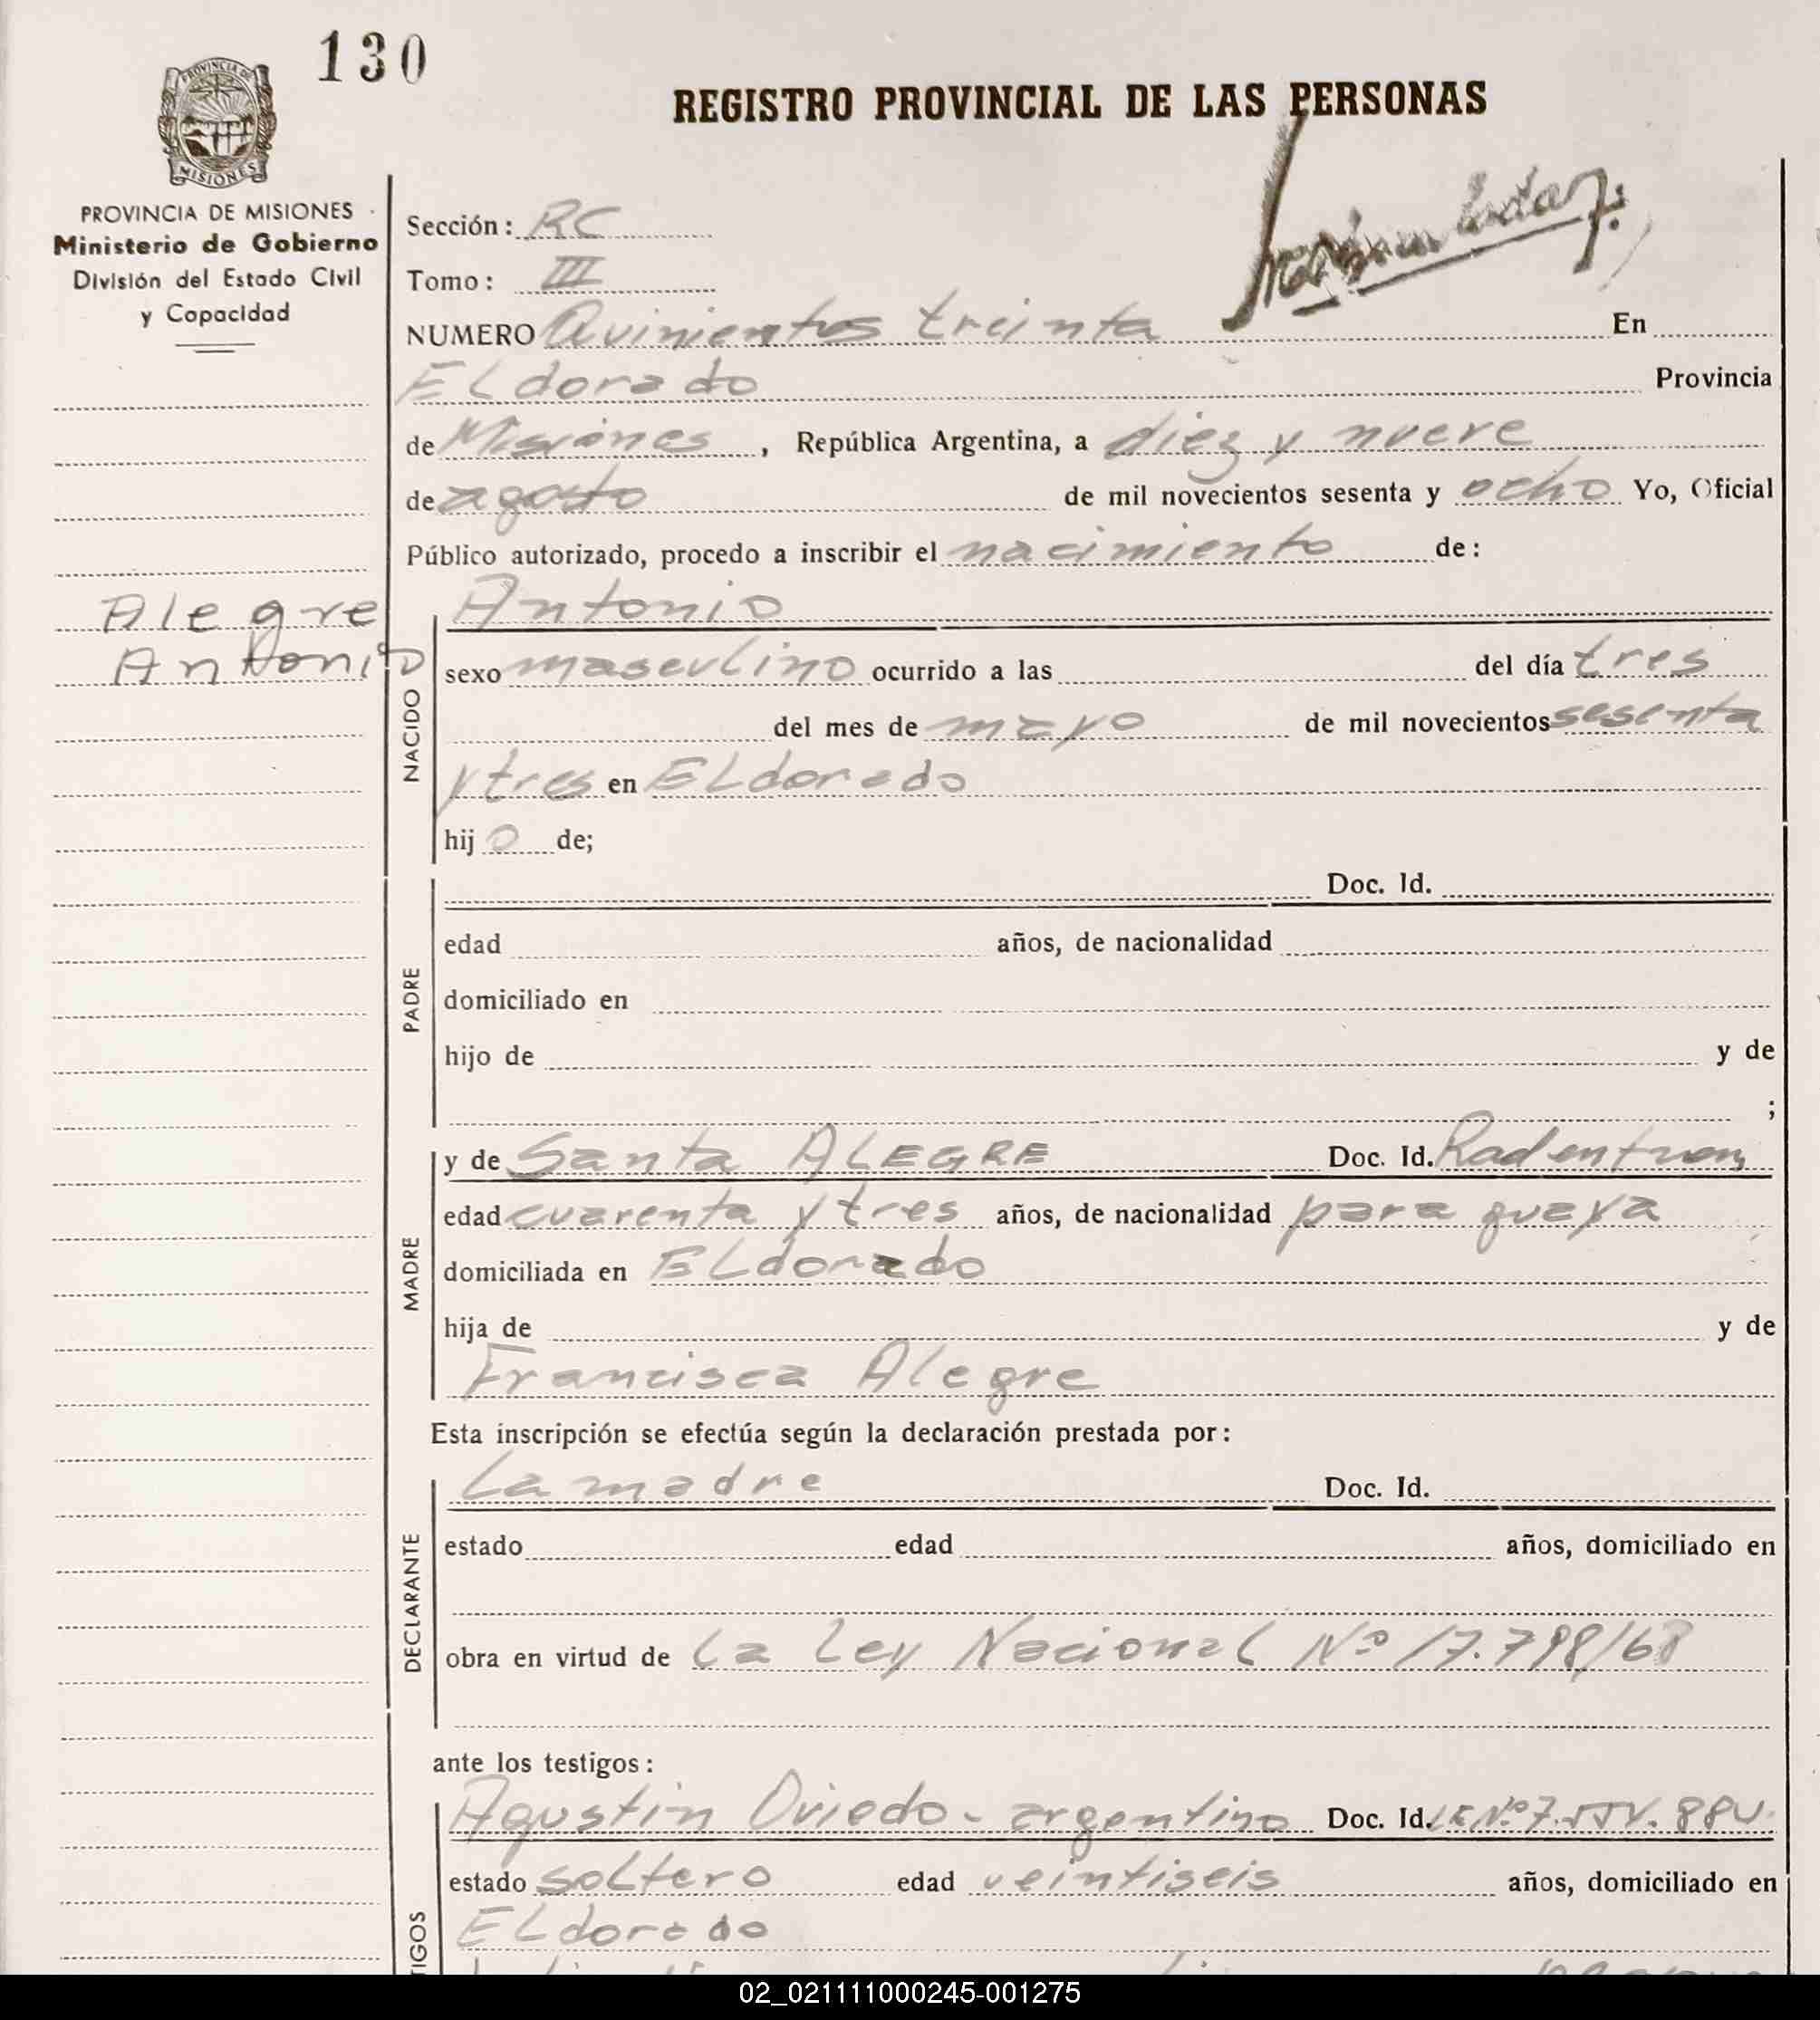 130
PROVINCIA DE
MISIONES
REGISTRO PROVINCIAL DE LAS PERSONAS
PROVINCIA DE MISIONES
Ministerio de Gobierno
División del Estado Civil
y Capacidad
Sección: RC
Tomo: III
NUMERO Quinientos treinta En
ELdorado Provincia
de Misiones, República Argentina, a diez y nueve
de agosto de mil novecientos sesenta y ocho Yo, Oficial
Público autorizado, procedo a inscribir el nacimiento de:
Alegre
Antonio
Antonio
NACIDO
sexo masculino ocurrido a las del día tres
del mes de mayo de mil novecientos sesenta
y tres en ELdorado
hijo de;
PADRE
Doc. Id.
edad años, de nacionalidad
domiciliado en
hijo de y de
;
MADRE
y de Santa ALEGRE Doc. Id.
edad cuarenta y tres años, de nacionalidad paraguaya
domiciliada en ELdorado
hija de y de
Francisca Alegre
Esta inscripción se efectúa según la declaración prestada por:
DECLARANTE
La madre Doc. Id.
estado edad años, domiciliado en
obra en virtud de La Ley Nacional Nº 17.798/68
ante los testigos:
TIGOS
Agustin Oviedo - argentino Doc. Id.
estado soltero edad veintiseis años, domiciliado en
ELdorado
02_021111000245-001275